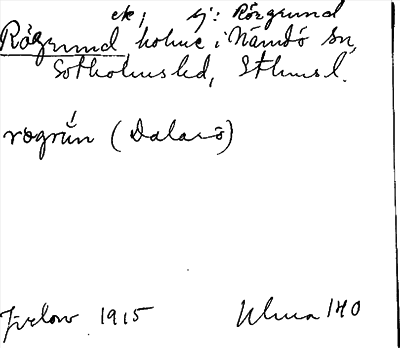 ek; sj: Rörgrund
Rögrund holme i Nämdö sn,
Sotholms hd, Sthms l.
rögrún (Dalarö)
1915 Uma 140